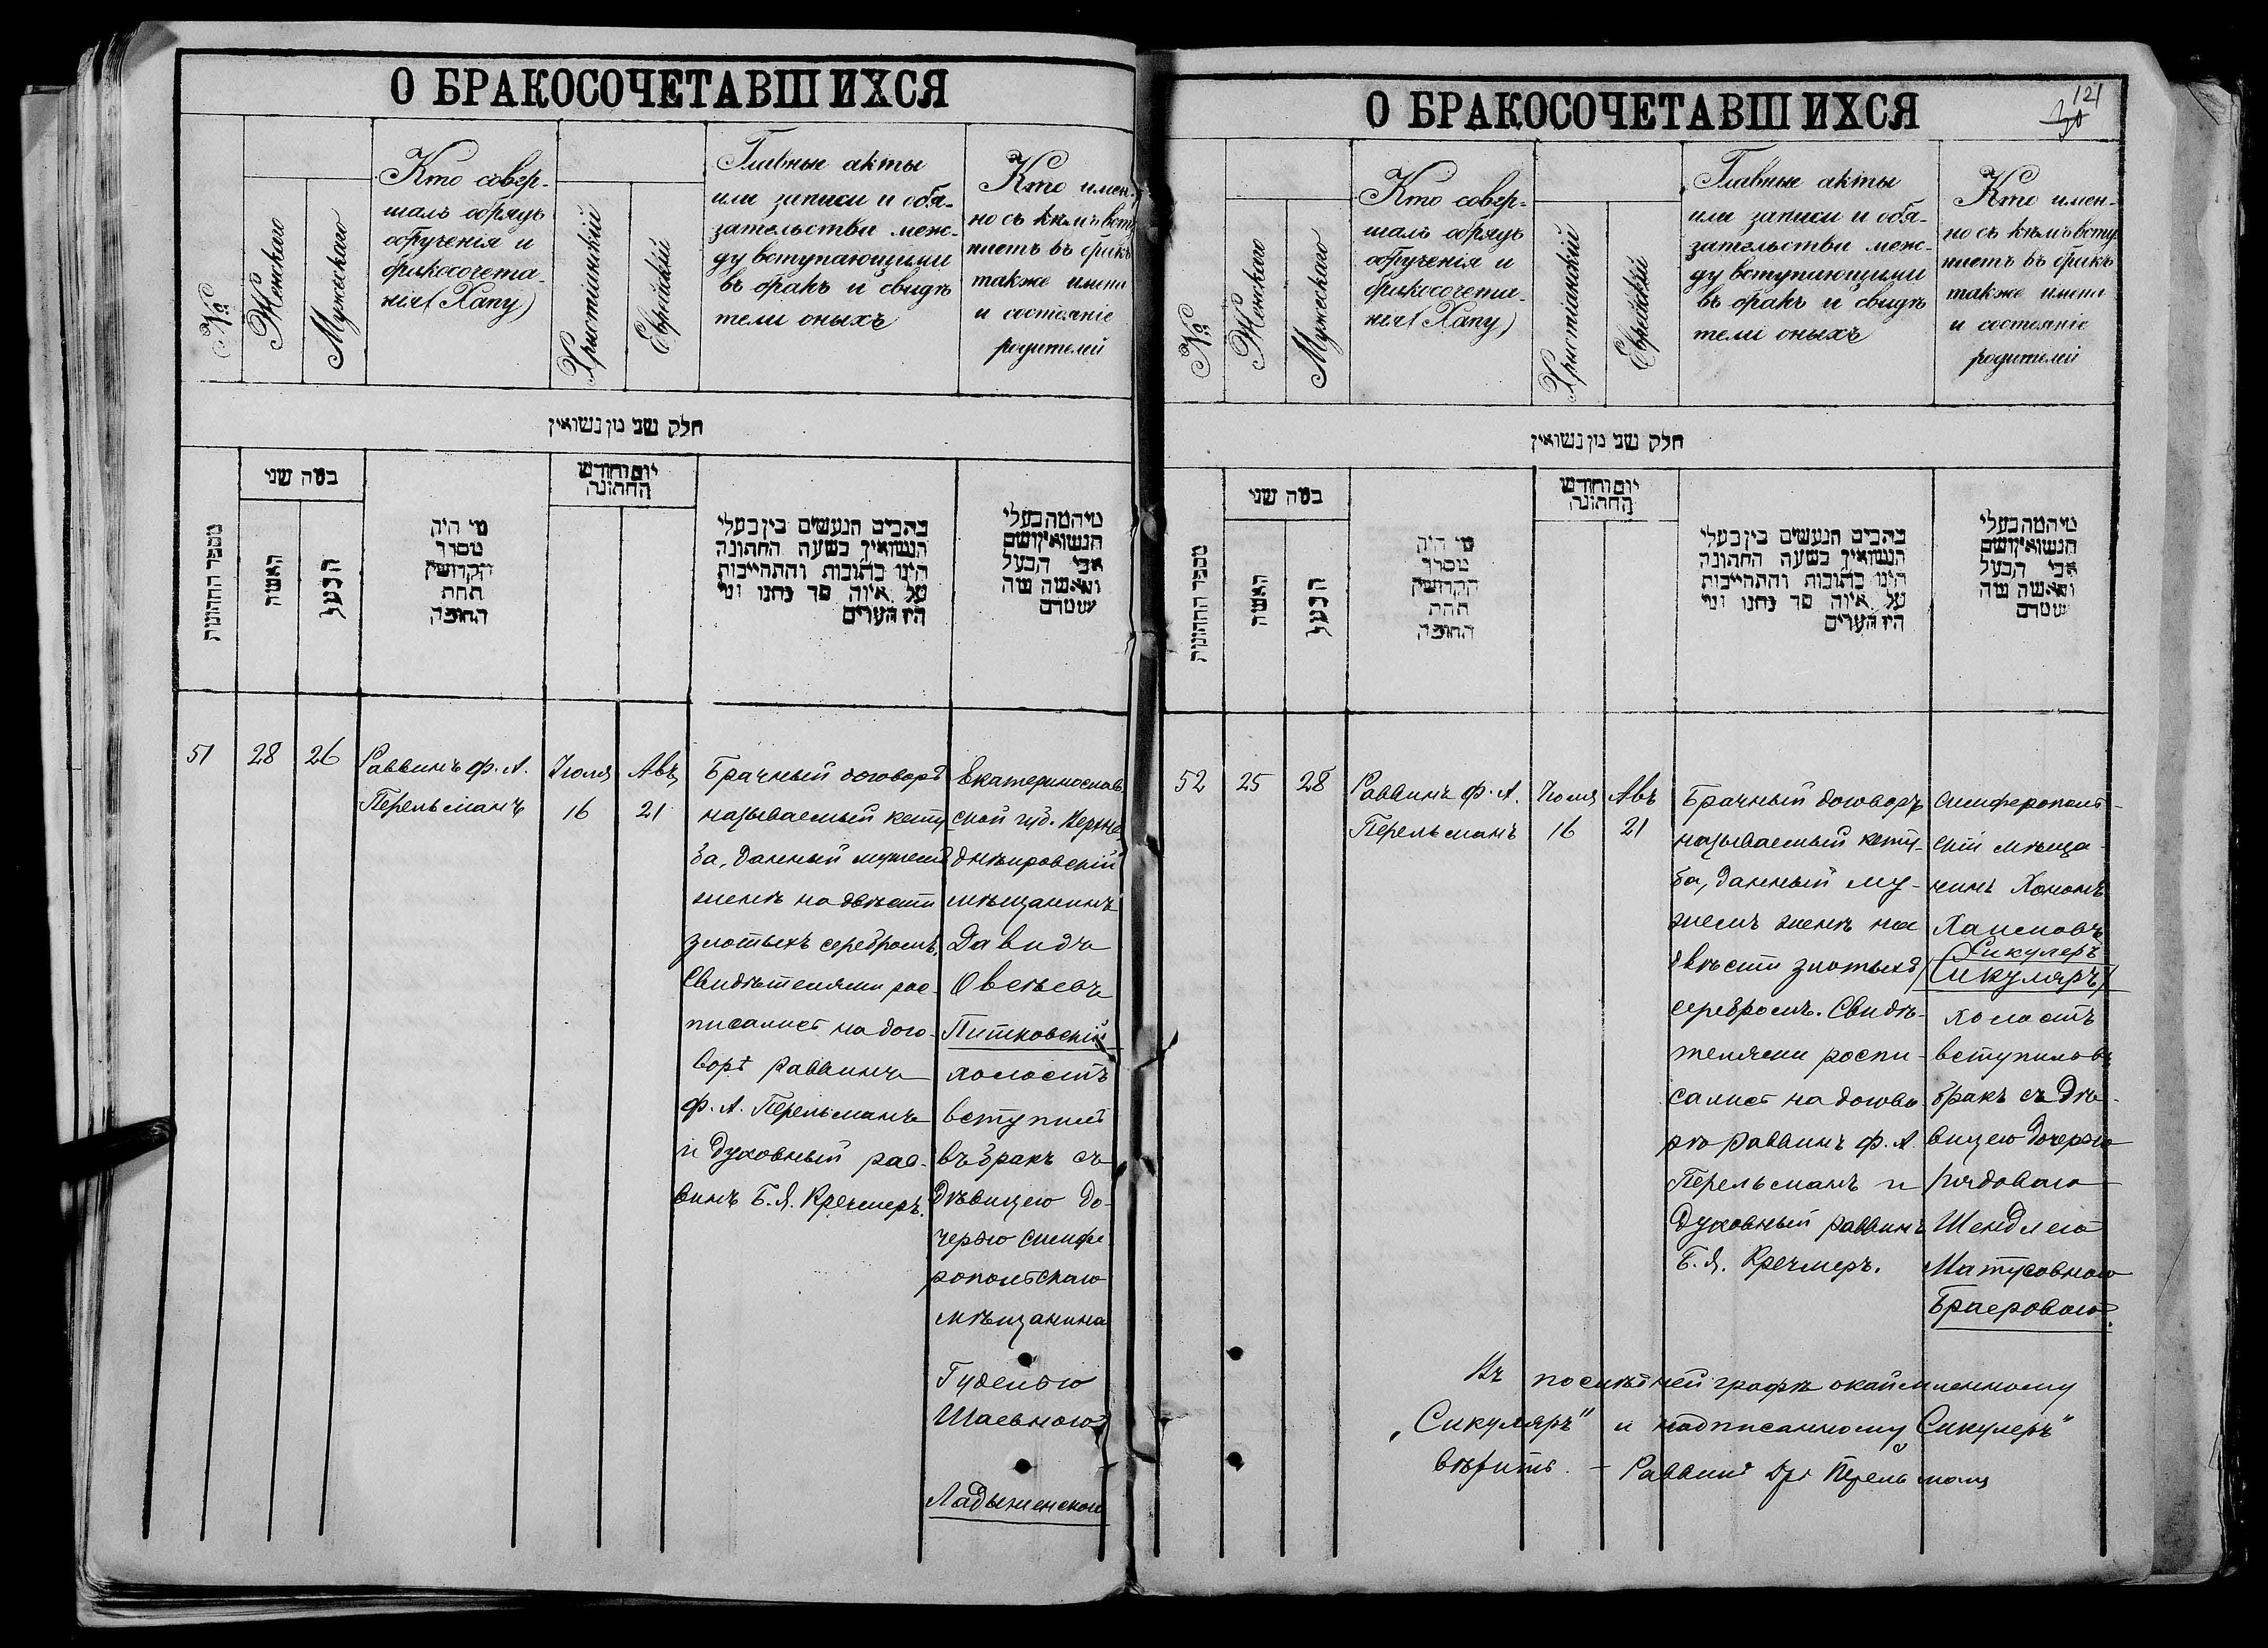 О БРАКОСОЧЕТАВШИХСЯ
№
Женскаго
Мужескаго
Кто совер-
шалъ обрядъ
обрученія и
бракосочета-
нія (Хапу)
Христіанскій
Еврейскій
Главные акты
или записи и обя-
зательства меж-
ду вступающими
въ бракъ и свидѣ
тели оныхъ
Кто имен-
но съ кѣмъ всту
паетъ въ бракъ
также имена
и состояніе
родителей
חלק שני מן נשואין
מספר החתונות
כמה שני
האשה
הבעל
מי היה
מסדר
הקדושין
תחת
החופה
יום וחודש
החתונה
כתבים הנעשים בין בעלי
הנשואין בשעה החתונה
היינו כתובות והתחייבות
על איזה סך נתנו ומי
היו העדים
מי המה בעלי
הנשואין ושם
אבי הבעל
והאשה ומה
מעמדם
51
28
26
Раввинъ Ф. А.
Перельманъ
Іюля
16
Авъ
21
Брачный договоръ
называемый кету
ба, данный мужемъ
женѣ на двѣсти
злотыхъ серебромъ.
Свидѣтелями рос-
писались на дого-
ворѣ раввинъ
Ф. А. Перельманъ
и духовный рав-
винъ Б. Я. Кречмеръ.
Екатеринослав
ской губ. Верхне
днѣпровскій
мѣщанинъ
Давидъ
Овсѣевъ
Питковскій
холостъ
вступилъ
въ бракъ съ
дѣвицею до-
черью симфе-
ропольскаго
мѣщанина
Гуделью
Шаевною
Ладыженскою
О БРАКОСОЧЕТАВШИХСЯ
121
№
Женскаго
Мужескаго
Кто совер-
шалъ обрядъ
обрученія и
бракосочета-
нія (Хапу)
Христіанскій
Еврейскій
Главные акты
или записи и обя-
зательства меж-
ду вступающими
въ бракъ и свидѣ
тели оныхъ
Кто имен-
но съ кѣмъ всту
паетъ въ бракъ
также имена
и состояніе
родителей
חלק שני מן נשואין
מספר החתונות
כמה שני
האשה
הבעל
מי היה
מסדר
הקדושין
תחת
החופה
יום וחודש
החתונה
כתבים הנעשים בין בעלי
הנשואין בשעה החתונה
היינו כתובות והתחייבות
על איזה סך נתנו ומי
היו העדים
מי המה בעלי
הנשואין ושם
אבי הבעל
והאשה ומה
מעמדם
52
25
28
Раввинъ Ф. А.
Перельманъ
Іюля
16
Авъ
21
Брачный договоръ
называемый кету-
ба, данный му-
жемъ женѣ на
двѣсти злотыхъ
серебромъ. Свидѣ-
телями роспи-
сались на догово
рѣ раввинъ Ф. А.
Перельманъ и
духовный раввинъ
Б. Я. Кречмеръ.
Симферополь-
скій мѣща-
нинъ Хононъ
Хаимовъ
Сикулеръ
(Сикуляръ)
холостъ
вступилъ въ
бракъ съ дѣ-
вицею дочерью
рядоваго
Шендлею
Матусовною
Браеровою.
Въ послѣдней графѣ окаймленному
„Сикуляръ" и надписанному „Сикулеръ"
вѣрить. – Раввинъ Др Перельманъ